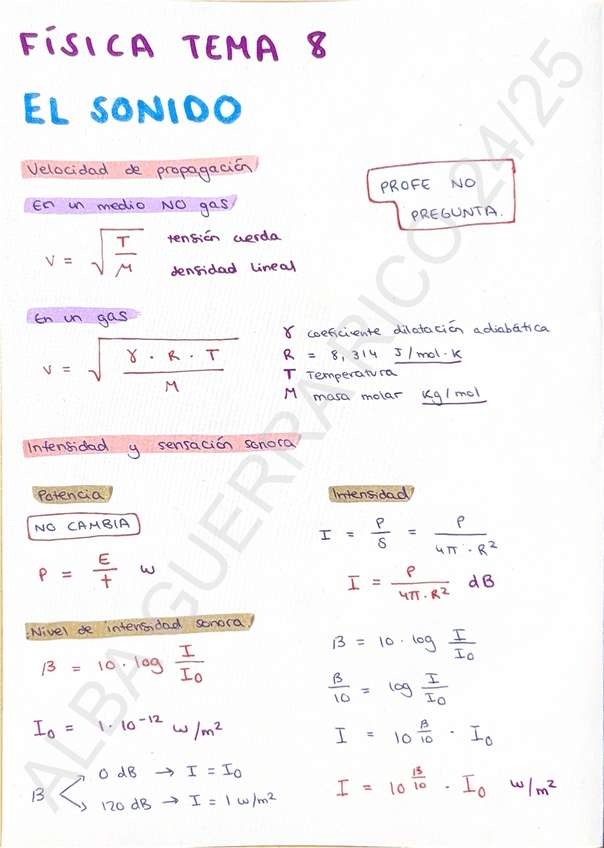 FÍSICA TEMA 8
EL SONIDO
Velocidad de propagación
PROFE NO
PREGUNTA.
En un medio NO gas
V = √(T/M) tensión cuerda
densidad lineal
En un gas
V = √(γ · R · T / M)
γ coeficiente dilatación adiabática
R = 8,314 J/mol·K
T Temperatura
M masa molar Kg/mol
Intensidad y sensación sonora
Potencia
NO CAMBIA
P = E/t w
Intensidad
I = P/S = P/4π·R²
I = P/4π·R² dB
Nivel de intensidad sonora
β = 10·log I/I₀
I₀ = 1·10⁻¹² w/m²
β
0 dB → I = I₀
120 dB → I = 1 w/m²
β = 10·log I/I₀
β/10 = log I/I₀
I = 10^(β/10) · I₀
I = 10^(β/10) · I₀ w/m²
ALBA GUERRA RICO 24/25